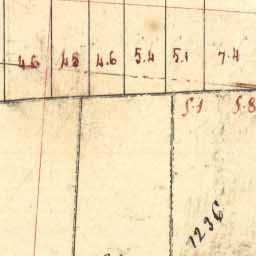 4.6 4.5 4.6 5.4 5.1 7.4
5.1 5.8
1236